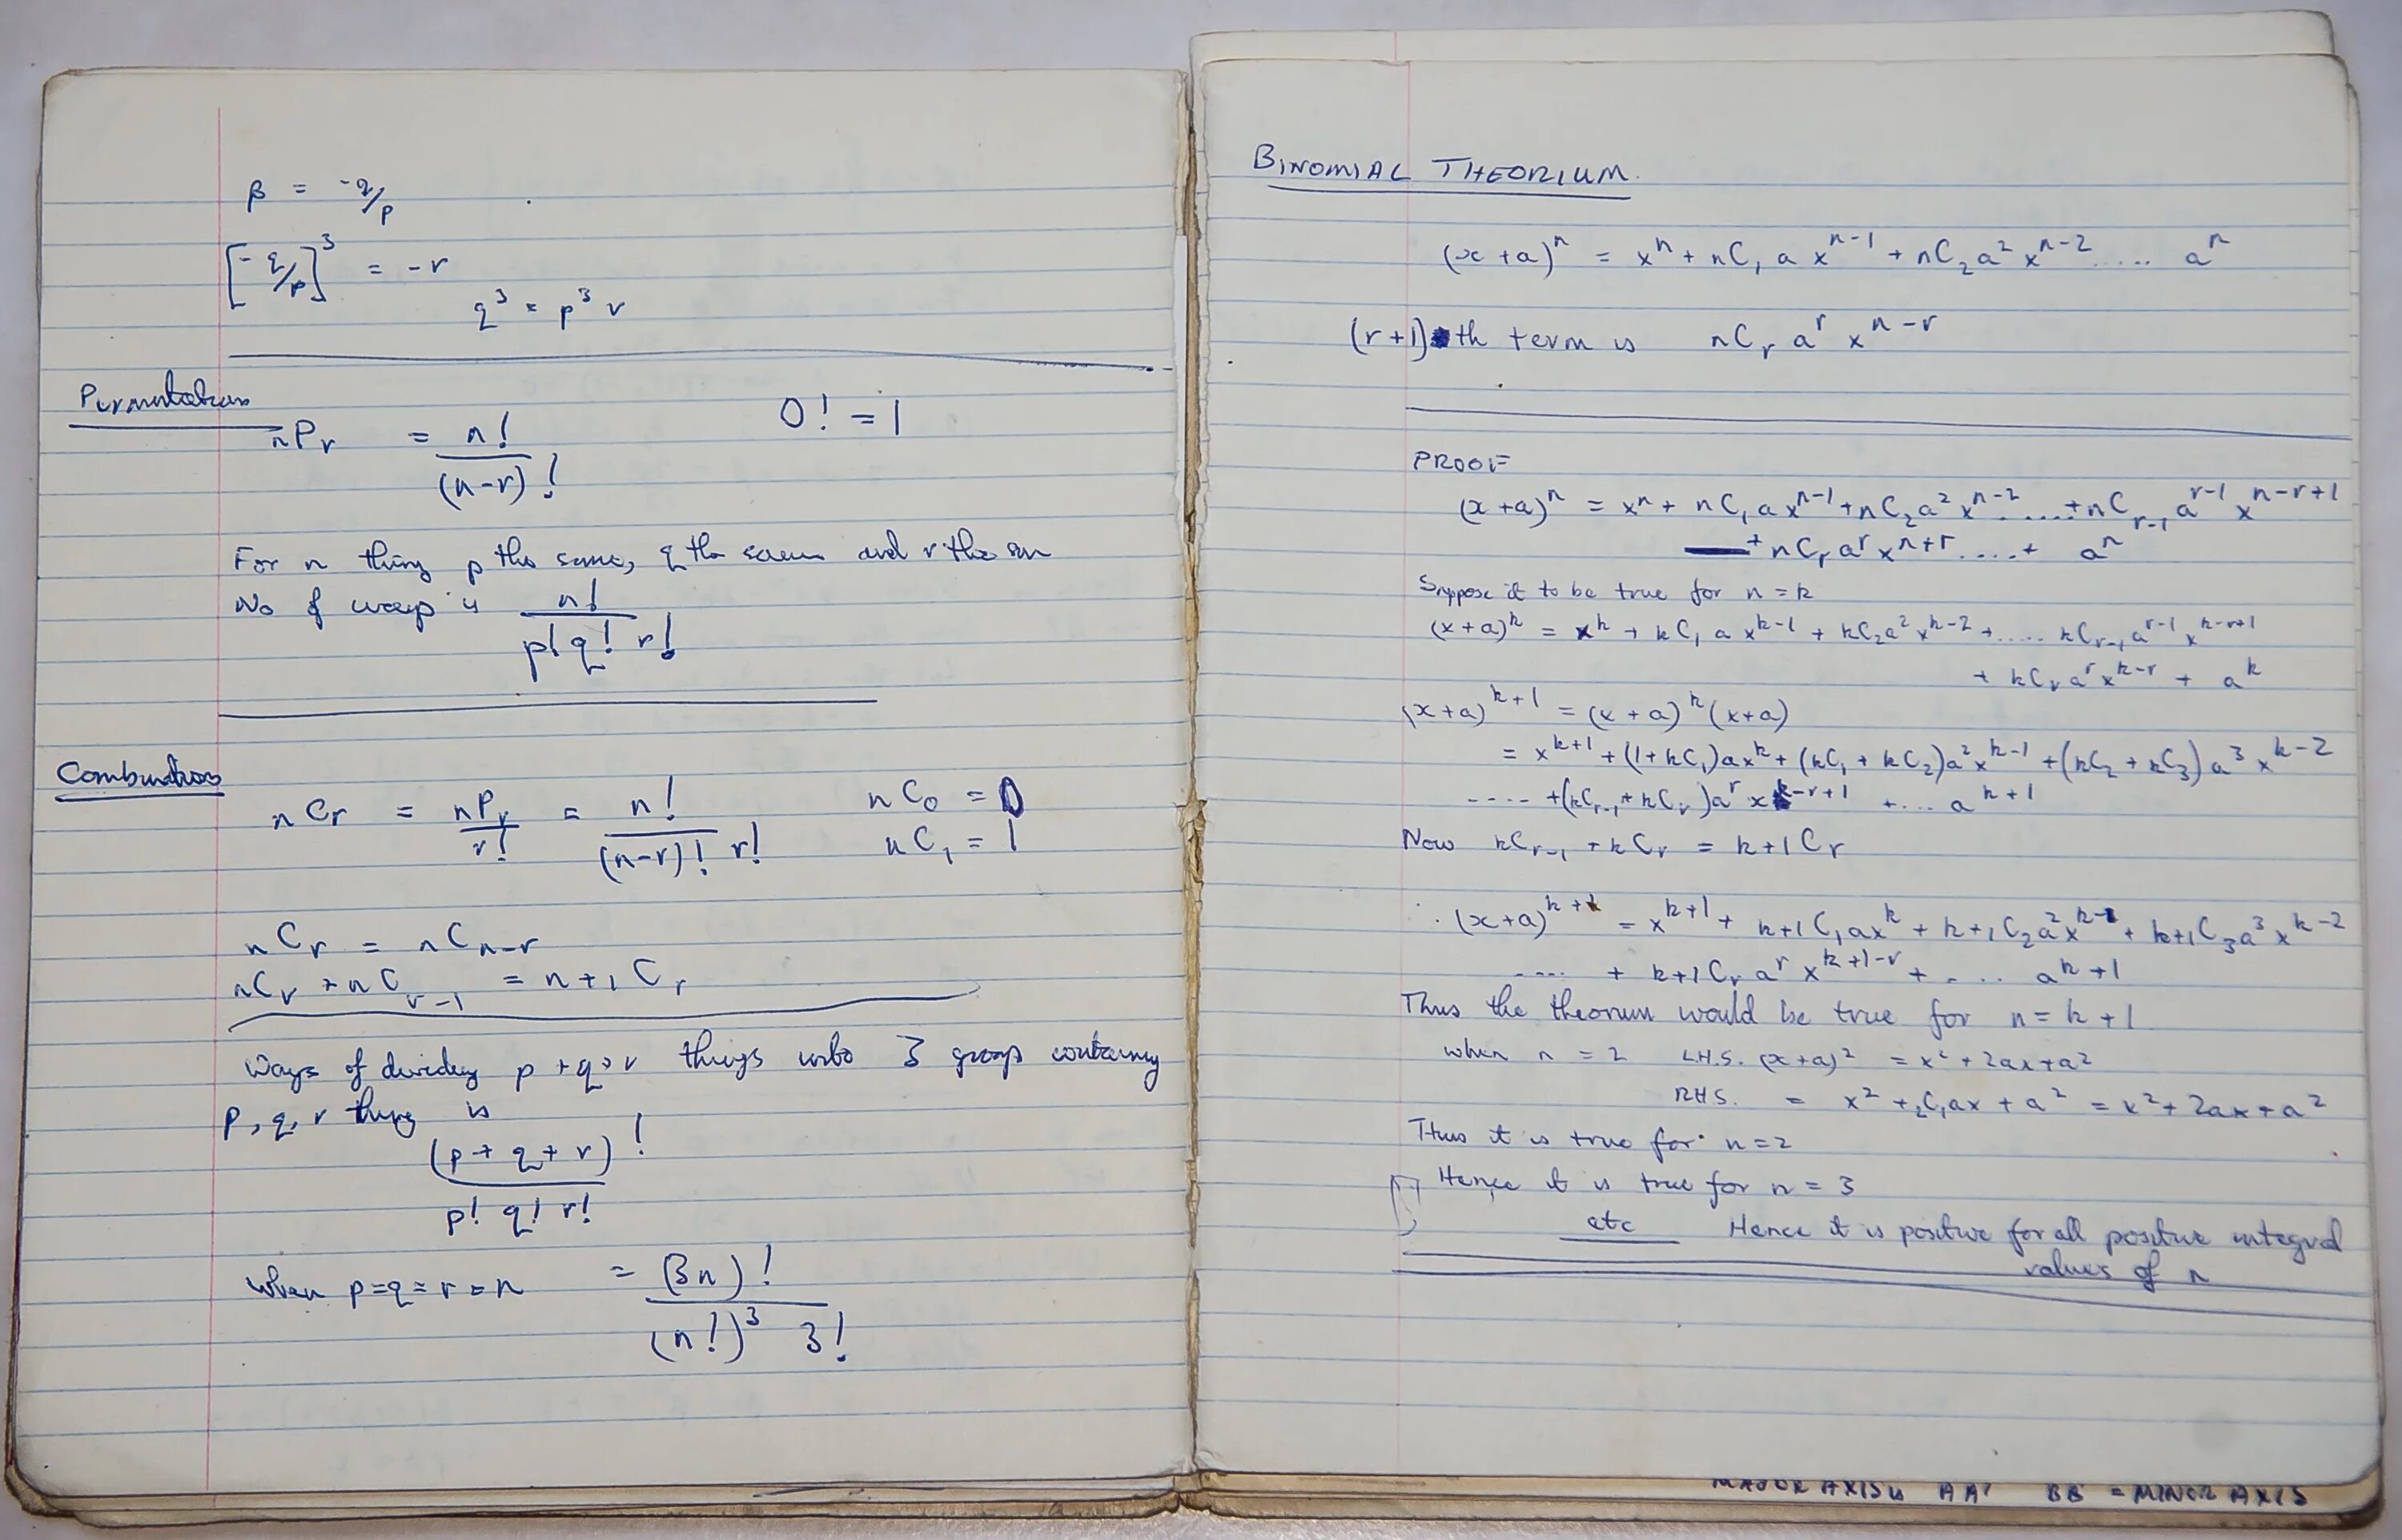 β = -q/p
[-q/p]³ = -r
q³ = p³ r
Permutations
nPr = n!/(n-r)! 0! = 1
For n thing p the same, q the same and r the same
No of ways is n!/(p! q! r!)
Combinations
nCr = nPr/r! = n!/((n-r)! r!) nC₀ = 0
nC₁ = 1
nCr = nCn-r
nCr + nCr-1 = n+1Cr
Ways of dividing p+q+r things into 3 group containing
p, q, r thing is
(p+q+r)!/(p! q! r!)
when p=q=r=n = (3n)!/((n!)³ 3!)
BINOMIAL THEORIUM.
(x+a)ⁿ = xⁿ + nC₁ a xⁿ⁻¹ + nC₂ a² xⁿ⁻² .... aⁿ
(r+1)th term is nCr aʳ xⁿ⁻ʳ
PROOF
(x+a)ⁿ = xⁿ + nC₁ a xⁿ⁻¹ + nC₂ a² xⁿ⁻² .....+ nCr-1 aʳ⁻¹ xⁿ⁻ʳ⁺¹
+ nCr aʳ xⁿ⁺ʳ ....+ aⁿ
Suppose it to be true for n = k
(x+a)ᵏ = xᵏ + kC₁ a xᵏ⁻¹ + kC₂ a² xᵏ⁻² + ..... kCr-1 aʳ⁻¹ xᵏ⁻ʳ⁺¹
+ kCr aʳ xᵏ⁻ʳ + aᵏ
(x+a)ᵏ⁺¹ = (x+a)ᵏ (x+a)
= xᵏ⁺¹ + (1+kC₁)axᵏ + (kC₁ + kC₂)a²xᵏ⁻¹ + (kC₂ + kC₃)a³ xᵏ⁻²
.... +(kCr-1 + kCr)aʳ xᵏ⁻ʳ⁺¹ +... aᵏ⁺¹
Now kCr-1 + kCr = k+1Cr
∴ (x+a)ᵏ⁺¹ = xᵏ⁺¹ + k+1C₁axᵏ + k+1C₂a²xᵏ⁻¹ + k+1C₃a³xᵏ⁻²
.... + k+1Cr aʳ xᵏ⁺¹⁻ʳ + .... aᵏ⁺¹
Thus the theorum would be true for n = k+1
when n = 2 L.H.S. (x+a)² = x² + 2ax + a²
RHS. = x² + ₂C₁ax + a² = x² + 2ax + a²
Thus it is true for n=2
Hence it is true for n = 3
etc Hence it is positive for all positive integral
values of n
MAJOR AXIS is AA' BB = MINOR AXIS